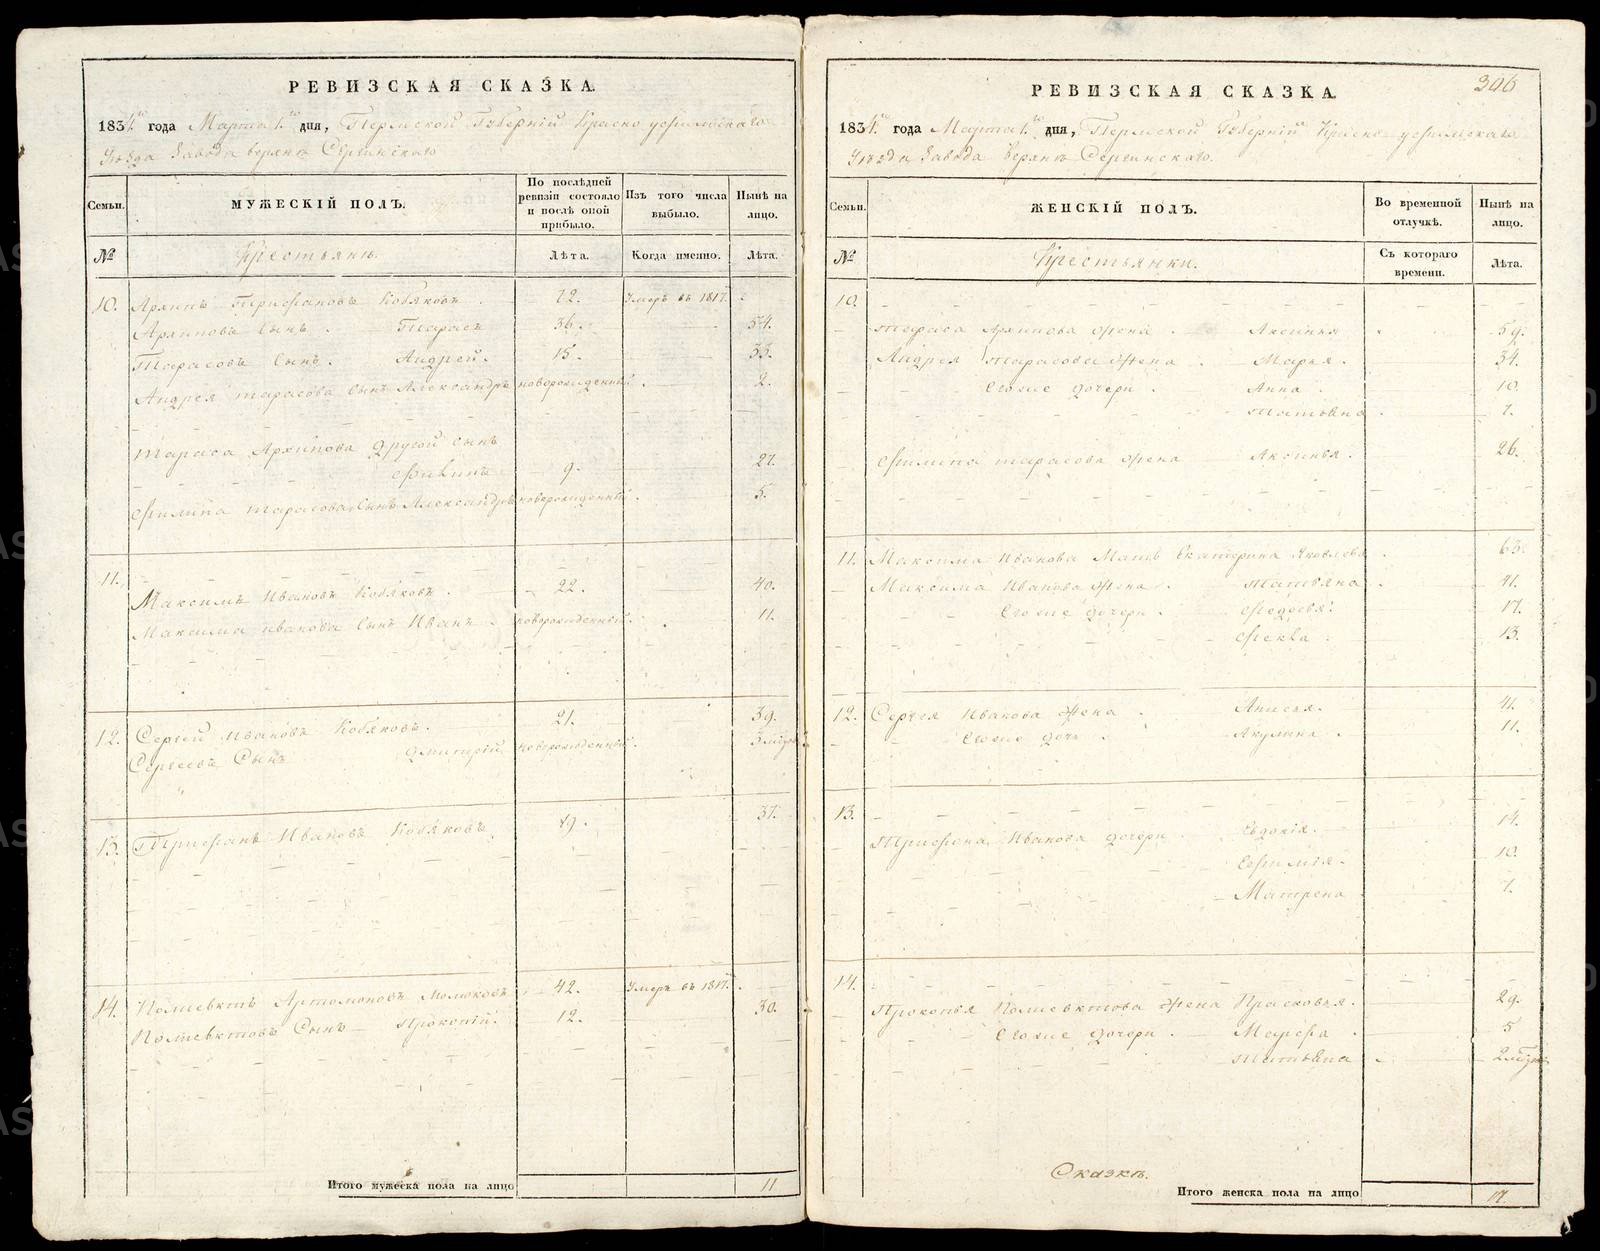 РЕВИЗСКАЯ СКАЗКА.
1834го года Марта 1го дня, Пермской Губернiи Красно уфимскаго
Уѣзда Завода верхнъ Сергинскаго
Семьи.
МУЖЕСКIЙ ПОЛЪ.
По послѣдней ревизiи состояло и послѣ оной прибыло.
Изъ того числа выбыло.
Нынѣ на лицо.
№
Крестьянъ.
Лѣта.
Когда именно.
Лѣта.
10. Архипъ Трифановъ Кобяковъ . 72. Умеръ въ 1817.
Архиповъ Сынъ . Тарасъ 36. 54.
Тарасовъ Сынъ . Андрей. 15. 33.
Андрея тарасова Сынъ Александръ новорожденный. 2.
Тараса Архипова другой сынъ
Филипъ 9. 27.
Филипа тарасова Сынъ Александръ новорожденный. 5.
11.
Максимъ Ивановъ Кобяковъ . 22. 40.
Максима иванова Сынъ Иванъ . новорожденный. 11.
12. Сергей Ивановъ Кобяковъ. 21. 39.
Сергеевъ Сынъ Дмитрiй новорожденный.
13. Трифанъ Ивановъ Кобяковъ. 19. 37.
14. Полиевктъ Артомоновъ Молоковъ 42. Умеръ въ 1817.
Полиевктовъ Сынъ Прокопiй. 12. 30.
Итого мужеска пола на лицо 11
РЕВИЗСКАЯ СКАЗКА.
306
1834го года Марта 1го дня, Пермской Губернiи Красно уфимскаго
Уѣзда Завода Верхнъ Сергинскаго.
Семьи.
ЖЕНСКIЙ ПОЛЪ.
Во временной отлучкѣ.
Нынѣ на лицо.
№
Крестьянки.
Съ котораго времени.
Лѣта.
10.
Тараса Архипова жена . Аксинья 59.
Андрея тарасова жена . Марья . 34.
Егоже дочери . Анна . 10.
татьяна . 7.
Филипа тарасова жена Аксинья . 26.
11. Максима Иванова Мать Екатерина Яковлева . 63.
Максима Иванова жена . татьяна . 41.
Егоже дочери . Федосья. 17.
Фекла . 13.
12. Сергея Иванова жена . Анисья. 41.
Егоже дочь . Акулина . 11.
13.
Трифона Иванова дочери . Евдокiя. 14.
Ефимiя. 10.
Матрена . 7.
14.
Прокопья Полиевктова жена Прасковья. 29.
Егоже дочери . Марфа . 5
татьяна
Сказкѣ.
Итого женска пола на лицо 17.